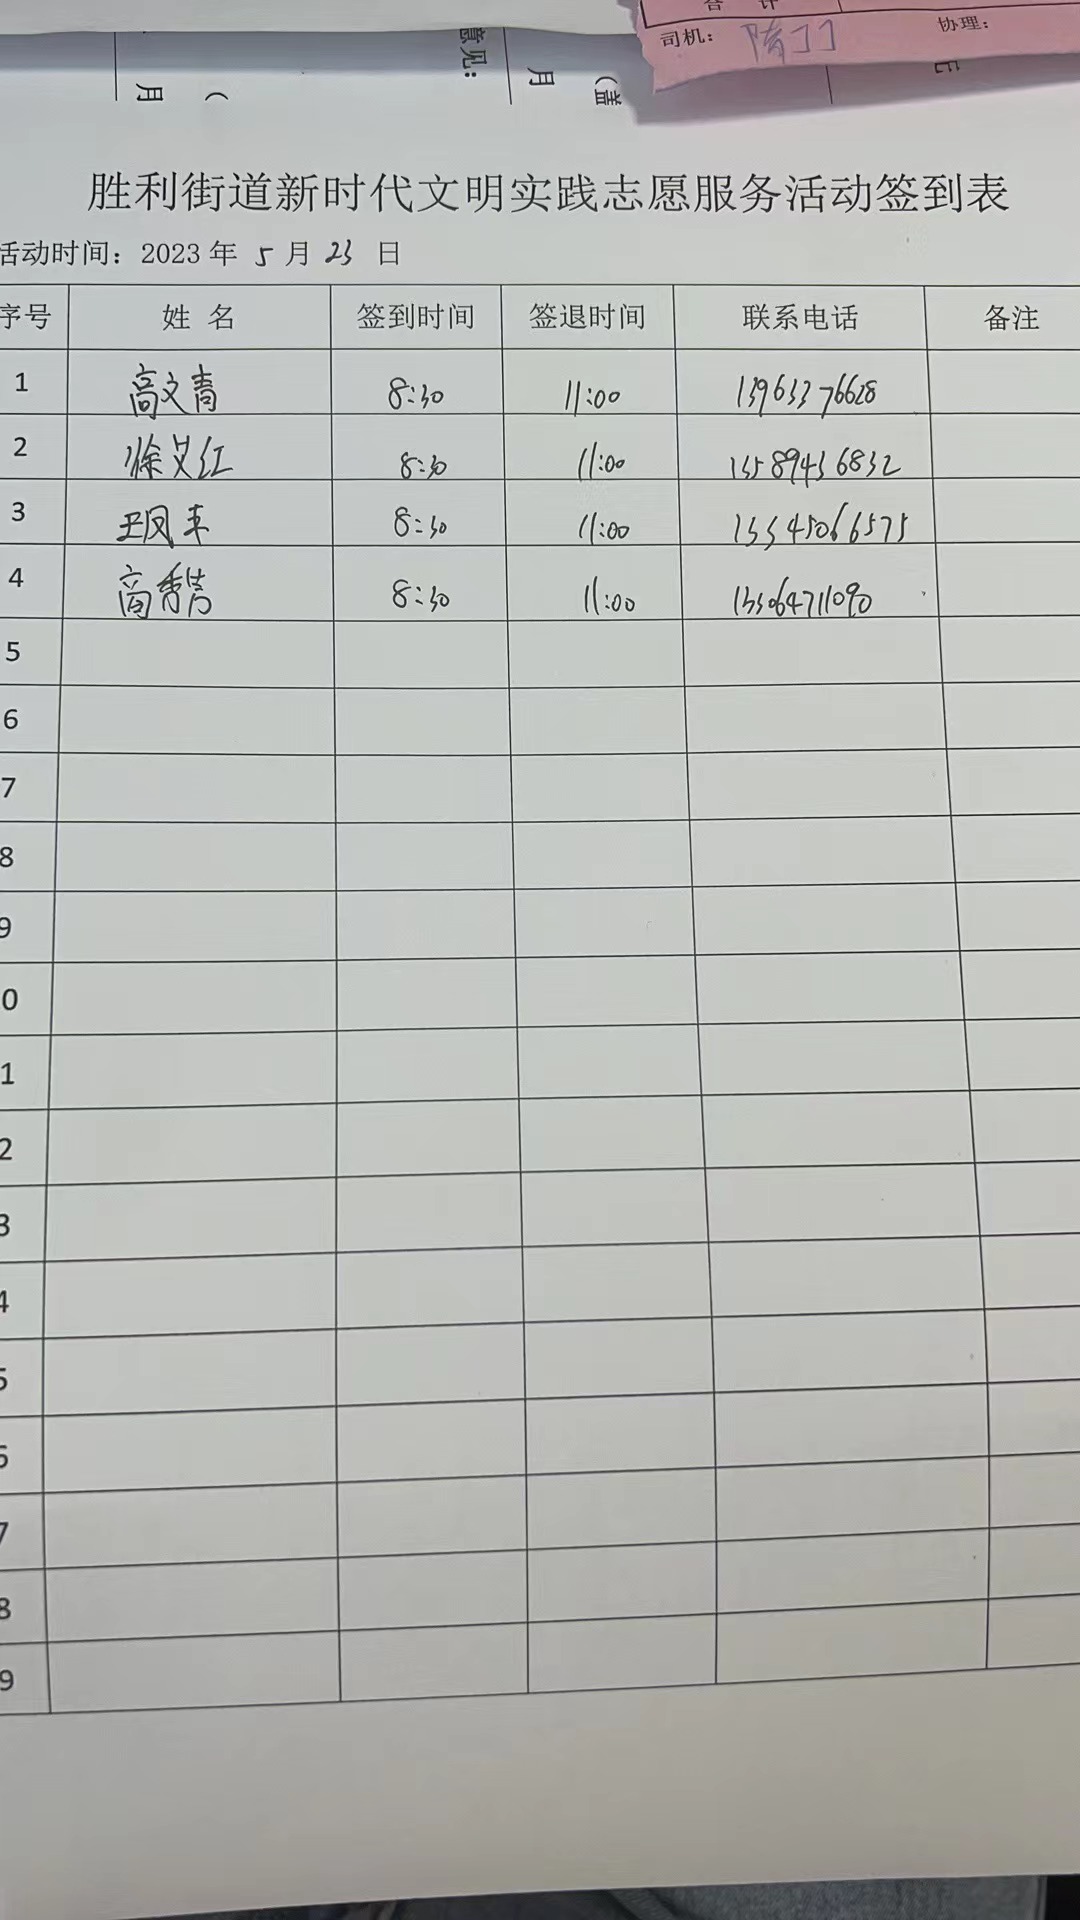 合 计
司机：
协理：
意见：
月
月
胜利街道新时代文明实践志愿服务活动签到表
活动时间：2023 年 5 月 23 日
序号 姓 名 签到时间 签退时间 联系电话 备注
1 高文青 8:30 11:00 13963376628
2 徐艾红 8:30 11:00 13589436832
3 王凤丰 8:30 11:00 13345066575
4 高秀青 8:30 11:00 13306471090
5
6
7
8
9
0
1
2
3
4
5
6
7
8
9